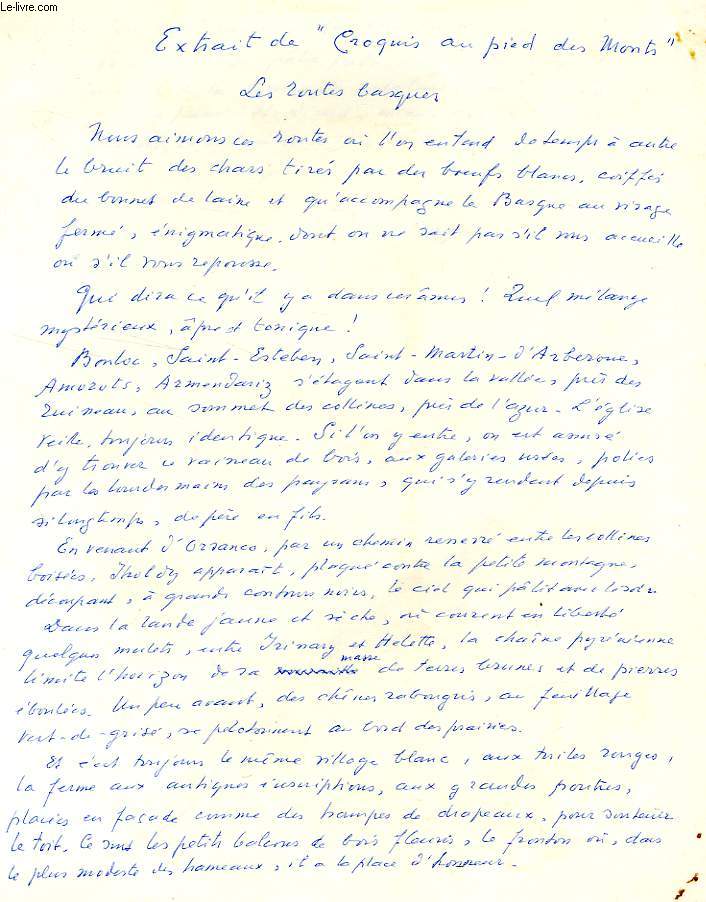 Le-livre.com
Extrait de "Croquis au pied des Monts"
Les routes basques
Nous aimons ces routes où l'on entend de temps à autre
le bruit des chars tirés par des bœufs blancs, coiffés
du bonnet de laine et qu'accompagne le Basque au visage
fermé, énigmatique, dont on ne sait pas s'il nous accueille
où s'il nous repousse.
Qui dira ce qu'il y a dans ces âmes ! Quel mélange
mystérieux, âpre et tonique !
Bonloc, Saint-Esteben, Saint-Martin-d'Arberoue,
Amorots, Armendariz s'étagent dans la vallée, près des
ruisseaux, au sommet des collines, près de l'azur. L'église
veille, toujours identique. Si l'on y entre, on est assuré
d'y trouver ce vaisseau de bois, aux galeries usées, polies
par les lourdes mains des paysans, qui s'y rendent depuis
si longtemps, de père en fils.
En venant d'Orsanco, par un chemin resserré entre les collines
boisées, Iholdy apparaît, plaqué contre la petite montagne,
découpant, à grands contours noirs, le ciel qui pâlit avec le soir.
Dans la lande jaune et sèche, où courent en liberté
quelques mulets, entre Irissary et Helette, la chaîne pyrénéenne
limite l'horizon de sa masse de terres brunes et de pierres
éboulées. Un peu avant, des chênes rabougris, au feuillage
vert-de-grisé, se pelotonnent au bord des prairies.
Et c'est toujours le même village blanc, aux tuiles rouges,
la ferme aux antiques inscriptions, aux grandes poutres,
placées en façade comme des hampes de drapeaux, pour soutenir
le toit. Ce sont les petits balcons de bois fleuris, le fronton où, dans
le plus modeste des hameaux, il a la place d'honneur.